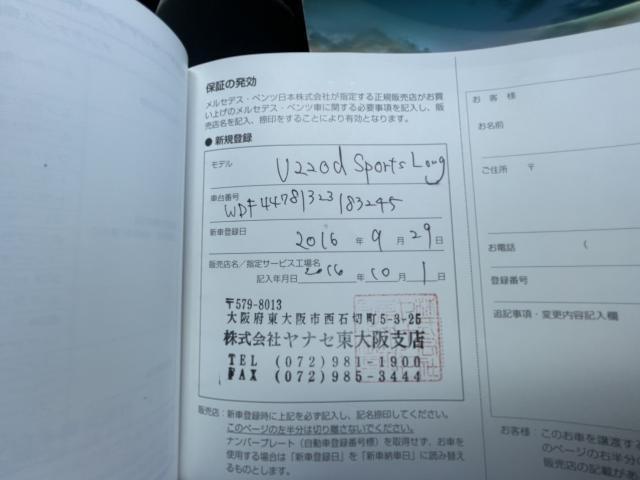 保証の発効
メルセデス・ベンツ日本株式会社が指定する正規販売店がお買
い上げのメルセデス・ベンツ車に関する必要事項を記入し、販
売店名を記入、捺印をすることにより有効となります。
● 新規登録
モデル V220d Sports Long
車台番号
WDF44781323183245
新車登録日 2016 年 9 月 29 日
販売店名/指定サービス工場名
記入年月日 2016 年 10 月 1 日
〒579-8013
大阪府東大阪市西石切町5-3-25
株式会社ヤナセ東大阪支店
TEL (072)981-1900
FAX (072)985-3444
販売店:新車登録時に上記を必ず記入し、記名捺印してください。
このページの左半分は切り離さないでください。
ナンバープレート(自動車登録番号標)を取得せず、お車を
使用する場合は「新車登録日」を「新車納車日」に読み替え
るものとします。
お客様
お名前
ご住所 〒
お電話 (
登録番号
追記事項・変更内容記入欄
お客様:このお車を譲渡す
このページの右半分
販売店の記載があ